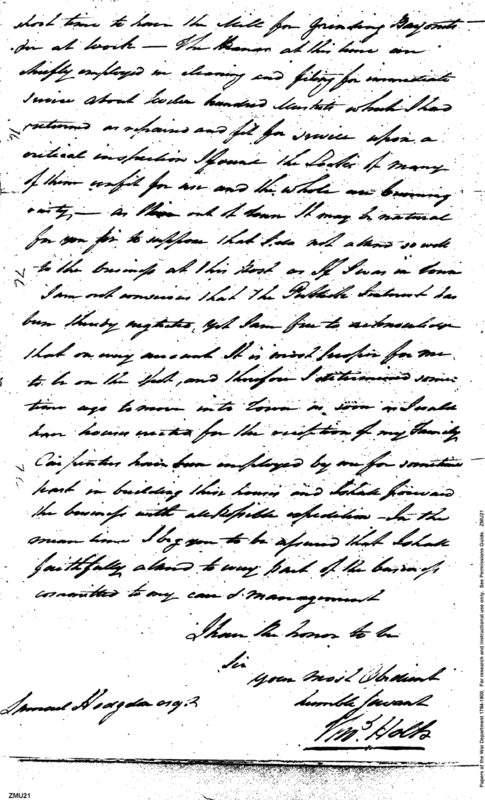 short time to have the Mill for Grinding Bayonets
&c at work — The Armorers at this time are
chiefly employed in cleaning and fixing for immediate
service about hundred Muskets which I had
returned as repaired and fit for service upon a
critical inspection I found the Locks of many
of them unfit for use and the whole are becoming
rusty, — as I live out of town It may be natural
for you Sir to suppose that I do not attend so well
to the business at this Post as If I was in town
I am not conscious that the Publick Interest has
been thereby neglected, yet I am free to acknowledge
that on every account It is most proper for me
to be on the Spot, and therefore I determined some-
time ago to move into Town as soon as I could
have houses erected for the reception of my Family
Carpenters have been employed by me for sometime
past in building these houses and I shall forward
the business with all possible expedition — In the
mean time I beg you to be assured that I shall
faithfully attend to every part of the business
committed to my care & management
I have the honor to be
Sir
your most Obedient
humble Servant
Samuel Hodgdon esqr
Thos Holt
ZMU21
Papers of the War Department 1784-1800. For research and instructional use only. See Permissions Guide. ZMU21